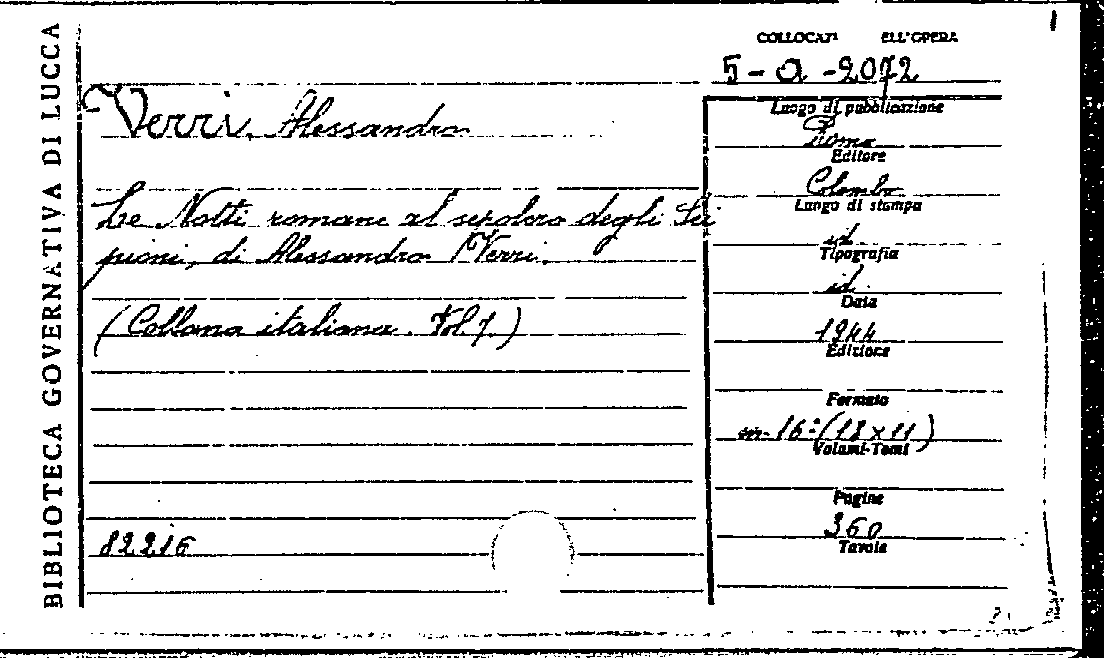 BIBLIOTECA GOVERNATIVA DI LUCCA
COLLOCATI ELL'OPERA
5-a-2072
Verri, Alessandro
Le Notti romane al sepolcro degli Sci
pioni, di Alessandro Verri.
(Collana italiana. Vol. 7.)
82216
Luogo di pubblicazione
Roma
Editore
Colombo
Luogo di stampa
id
Tipografia
id.
Data
1944
Edizione
Formato
in-16º (18x11)
Volumi-Tomi
Pagine
360
Tavole